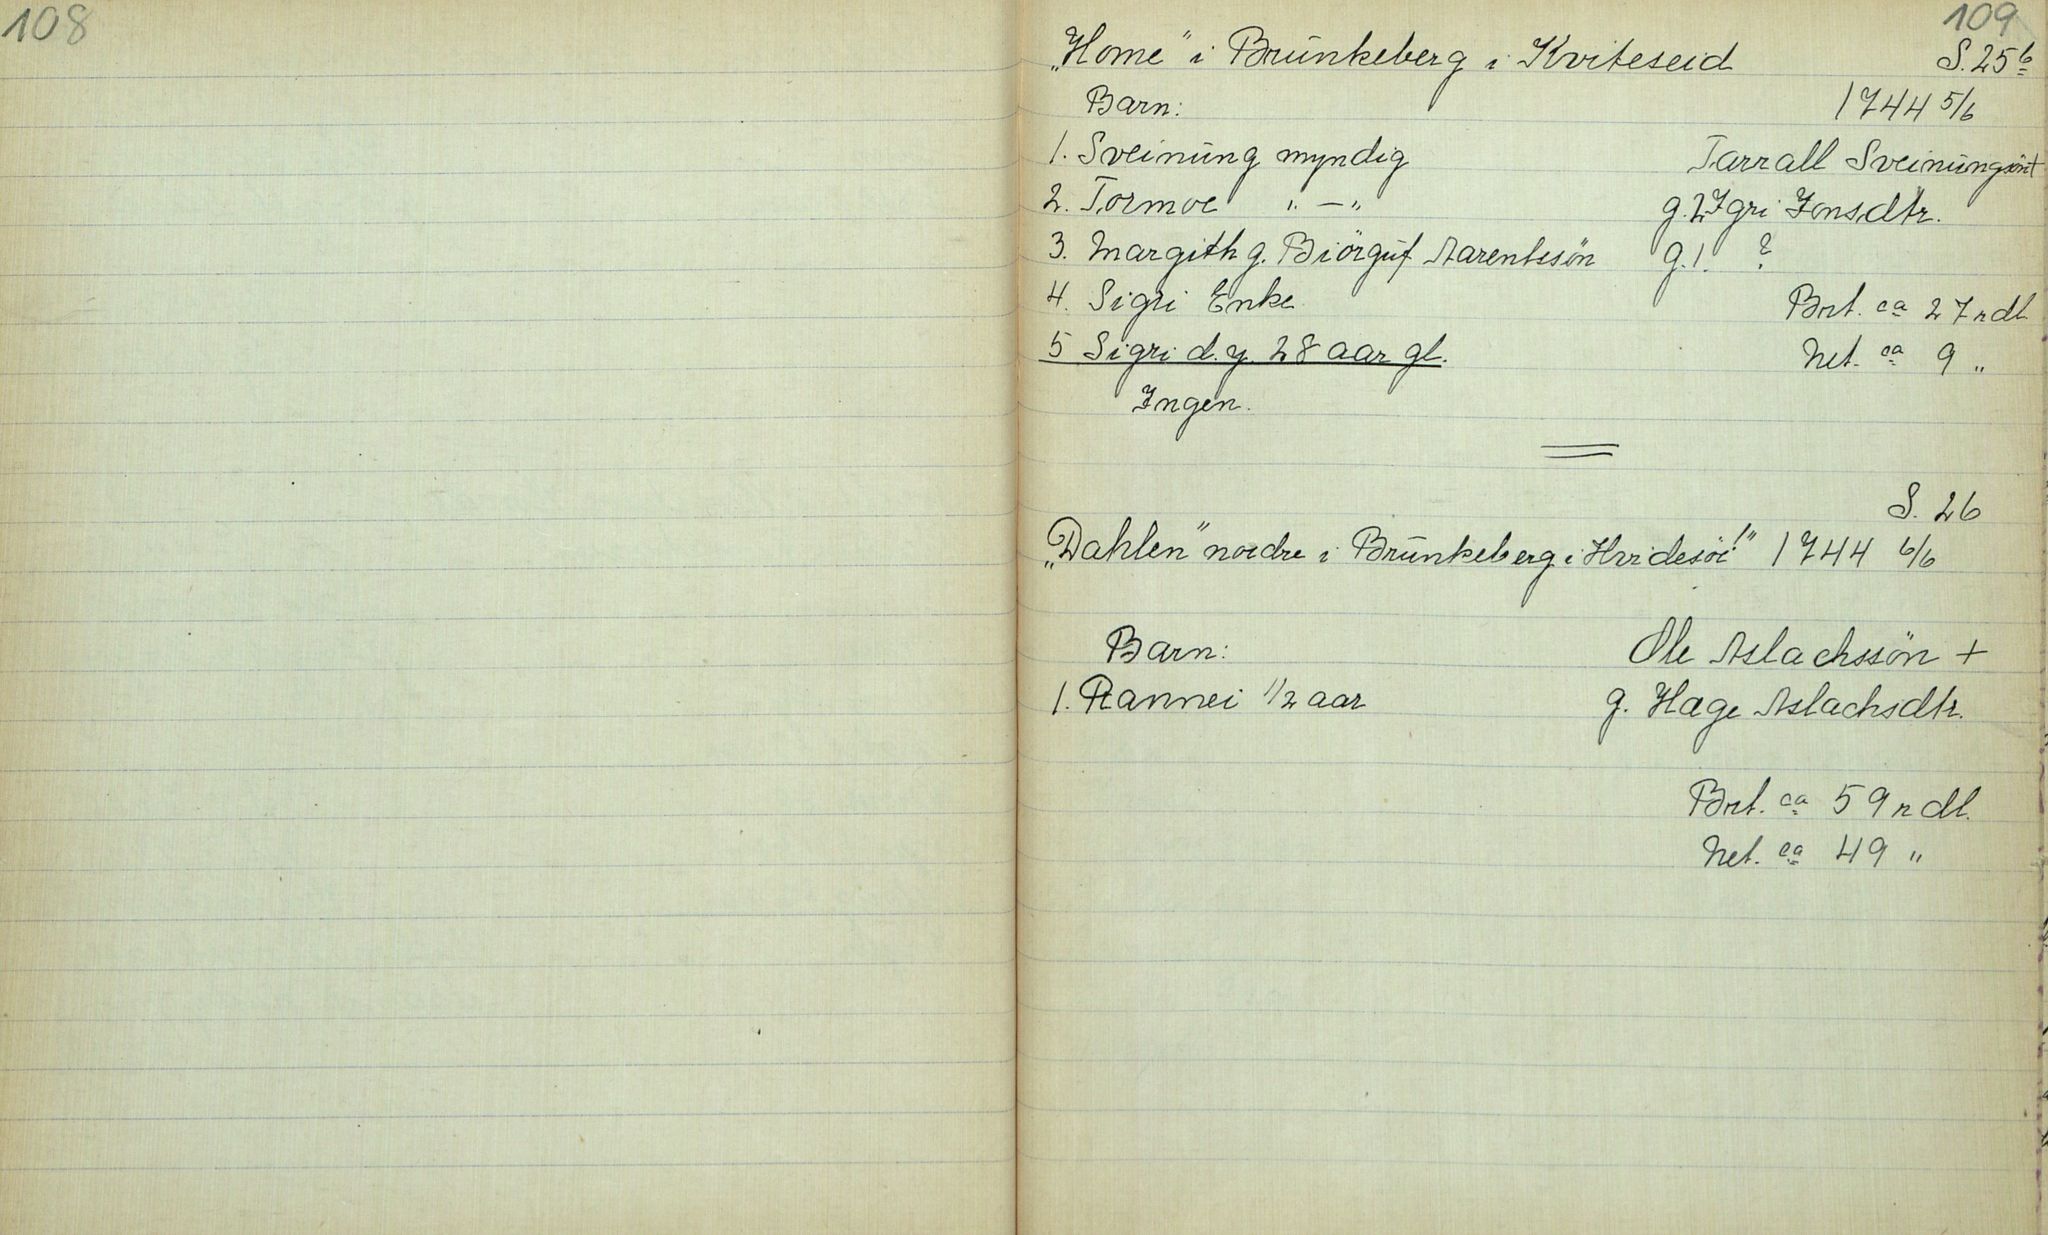 108
109
„Home" i Brünkeberg i Kviteseid S. 25 b
Barn: 1744 5/6
1. Sveinüng myndig Tarrall Sveinüngsön +
2. Tormoe " — " g. 2 Jgri Jonsdtr.
3. Margith g. Biörgüf Aarentssön g. 1. ?
4. Sigri Enke Brt. ca 27 rdl.
5 Sigri d. y. 28 aar gl. Net. ca 9 "
Jngen.
S. 26
„Dahlen" nordre i Brünkeberg i Hvidesöe!" 1744 6/6
Barn: Ole Aslachssön +
1. Rannei 1/2 aar g. Hæge Aslachsdtr.
Brt. ca 59 rdl.
Net. ca 49 "